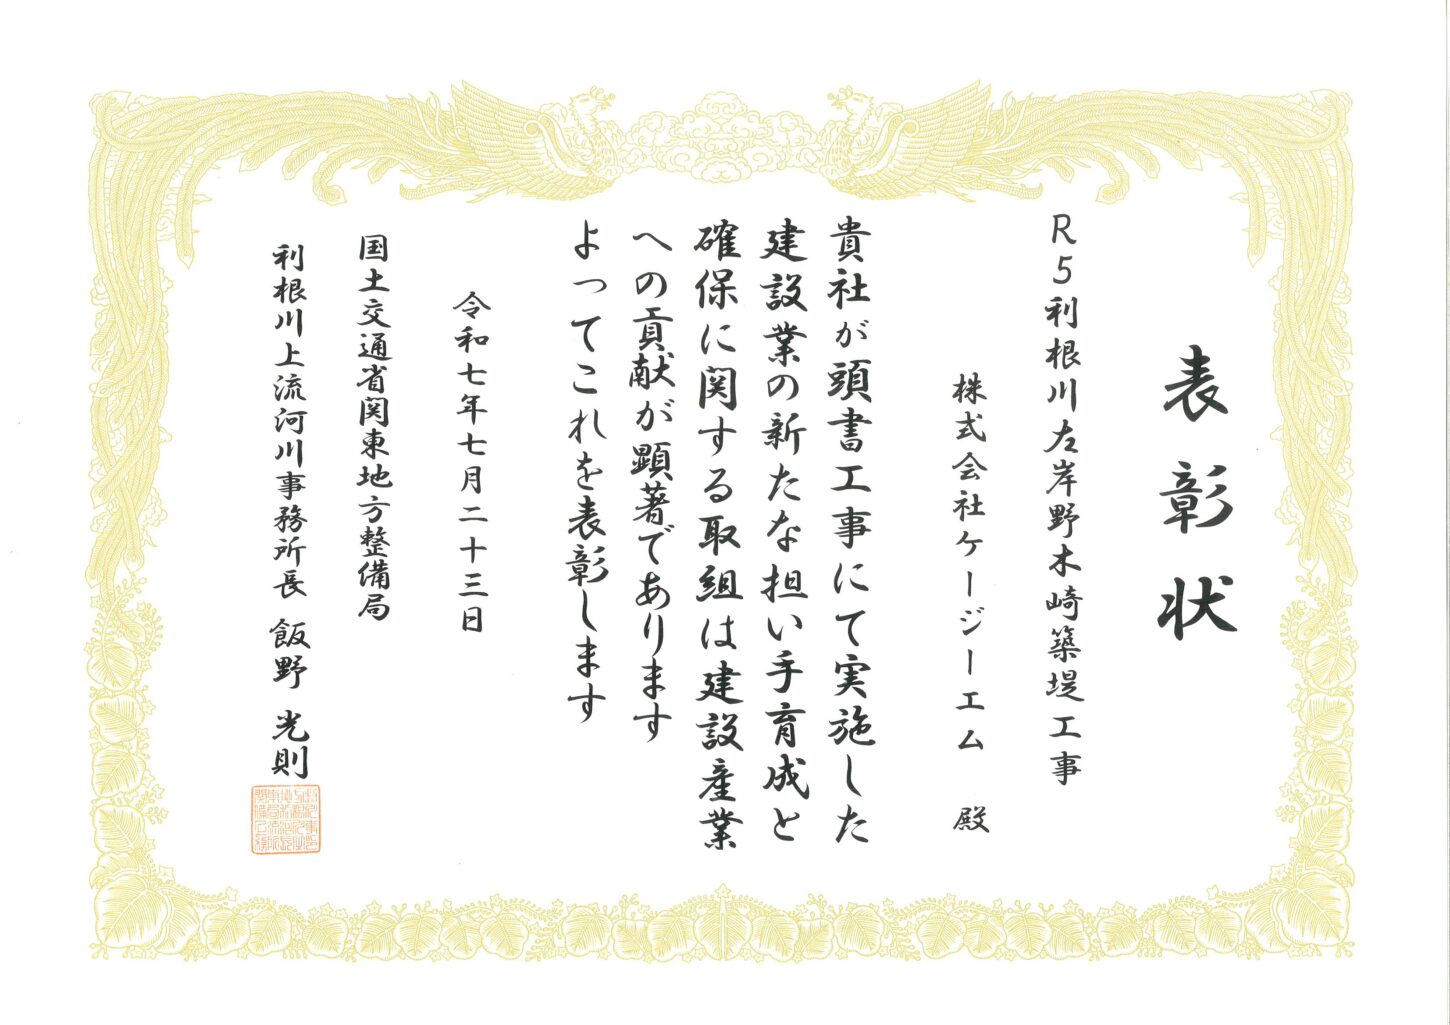 表彰状
R5利根川左岸野木崎築堤工事
株式会社ケージーエム 殿
貴社が頭書工事にて実施した
建設業の新たな担い手育成と
確保に関する取組は建設産業
への貢献が顕著であります
よってこれを表彰します
令和七年七月二十三日
国土交通省関東地方整備局
利根川上流河川事務所長 飯野 光則